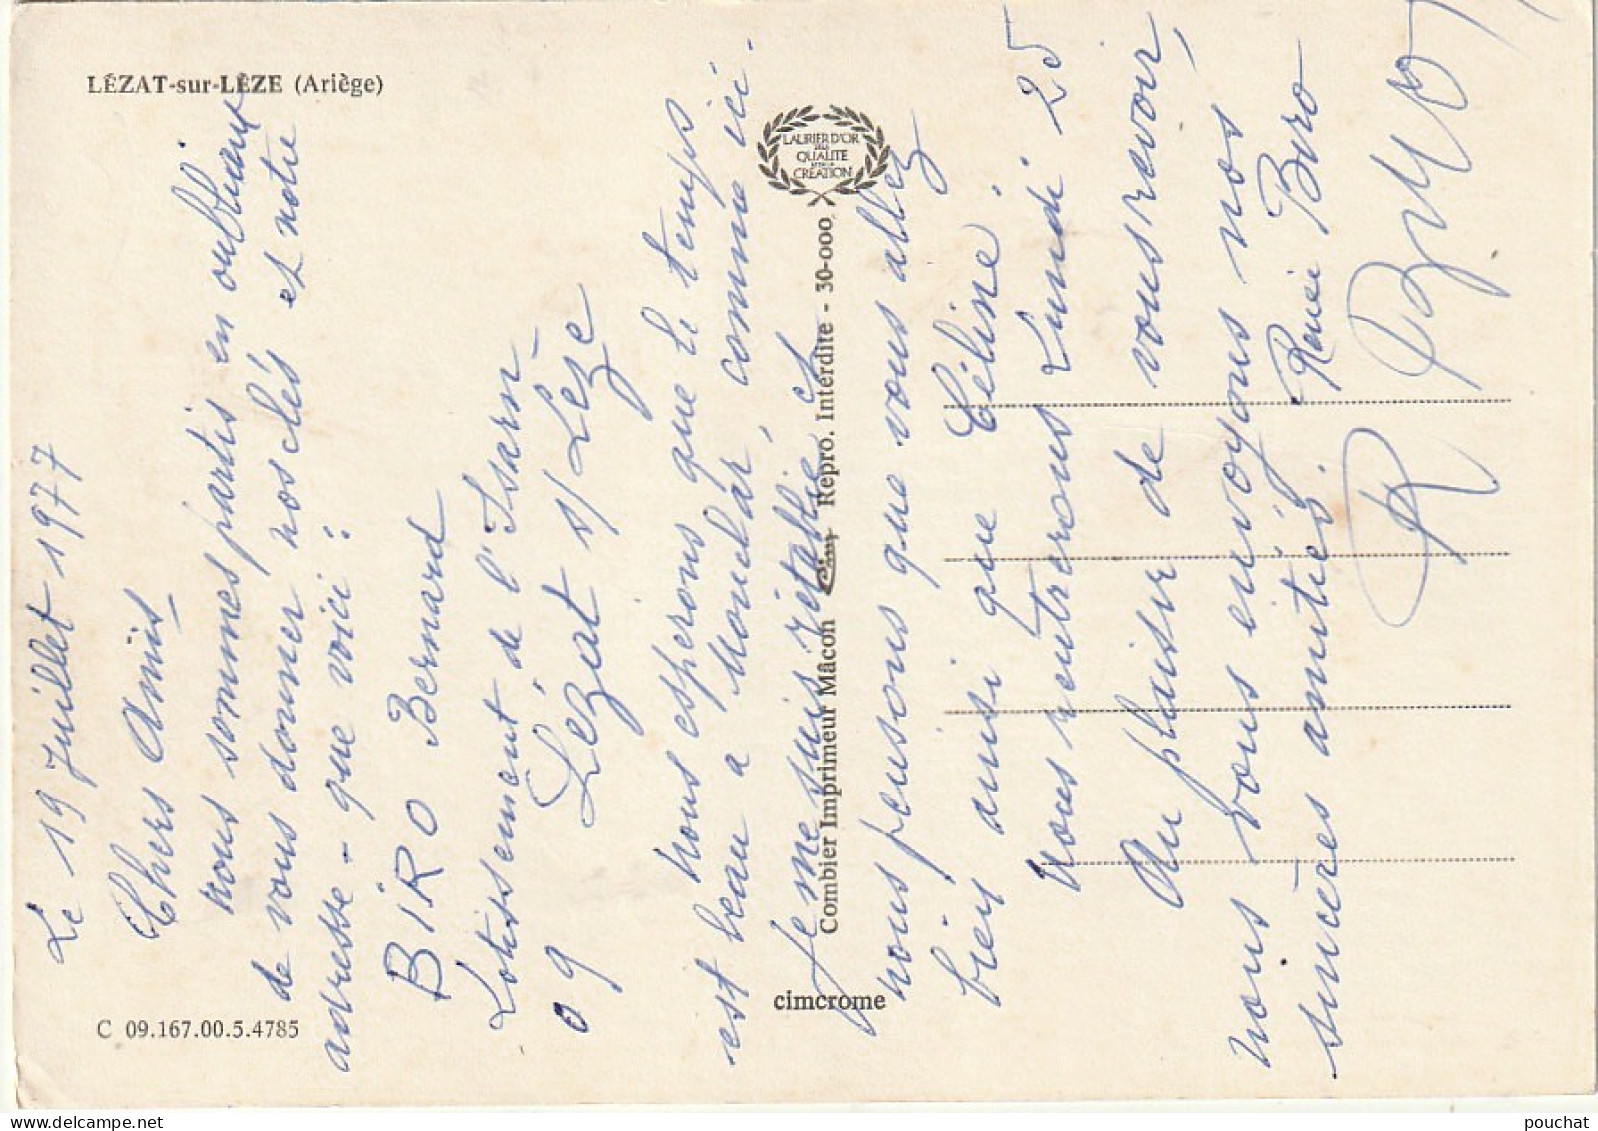 LÉZAT-sur-LÈZE (Ariège)
LAURIER D'OR
DE LA
QUALITÉ
CRÉATION
Combier Imprimeur Mâcon Cim Repro. Interdite - 30-000
cimcrome
C 09.167.00.5.4785
Le 19 Juillet 1977
Chers Amis
nous sommes partis en oubliant
de vous donner nos clés et notre
adresse - que voici :
BIRO Bernard
Lotissement de l'Isarn
09 Lézat s/Lèze
Nous espérons que le temps
est beau a Monclar, comme ici.
Je me suis rétablie et
nous pensons que vous allez
bien ainsi que Céline.
Nous rentrerons Lundi 25
Au plaisir de vous revoir,
nous vous envoyons nos
sincères amitiés. Renée Biro
pouchat